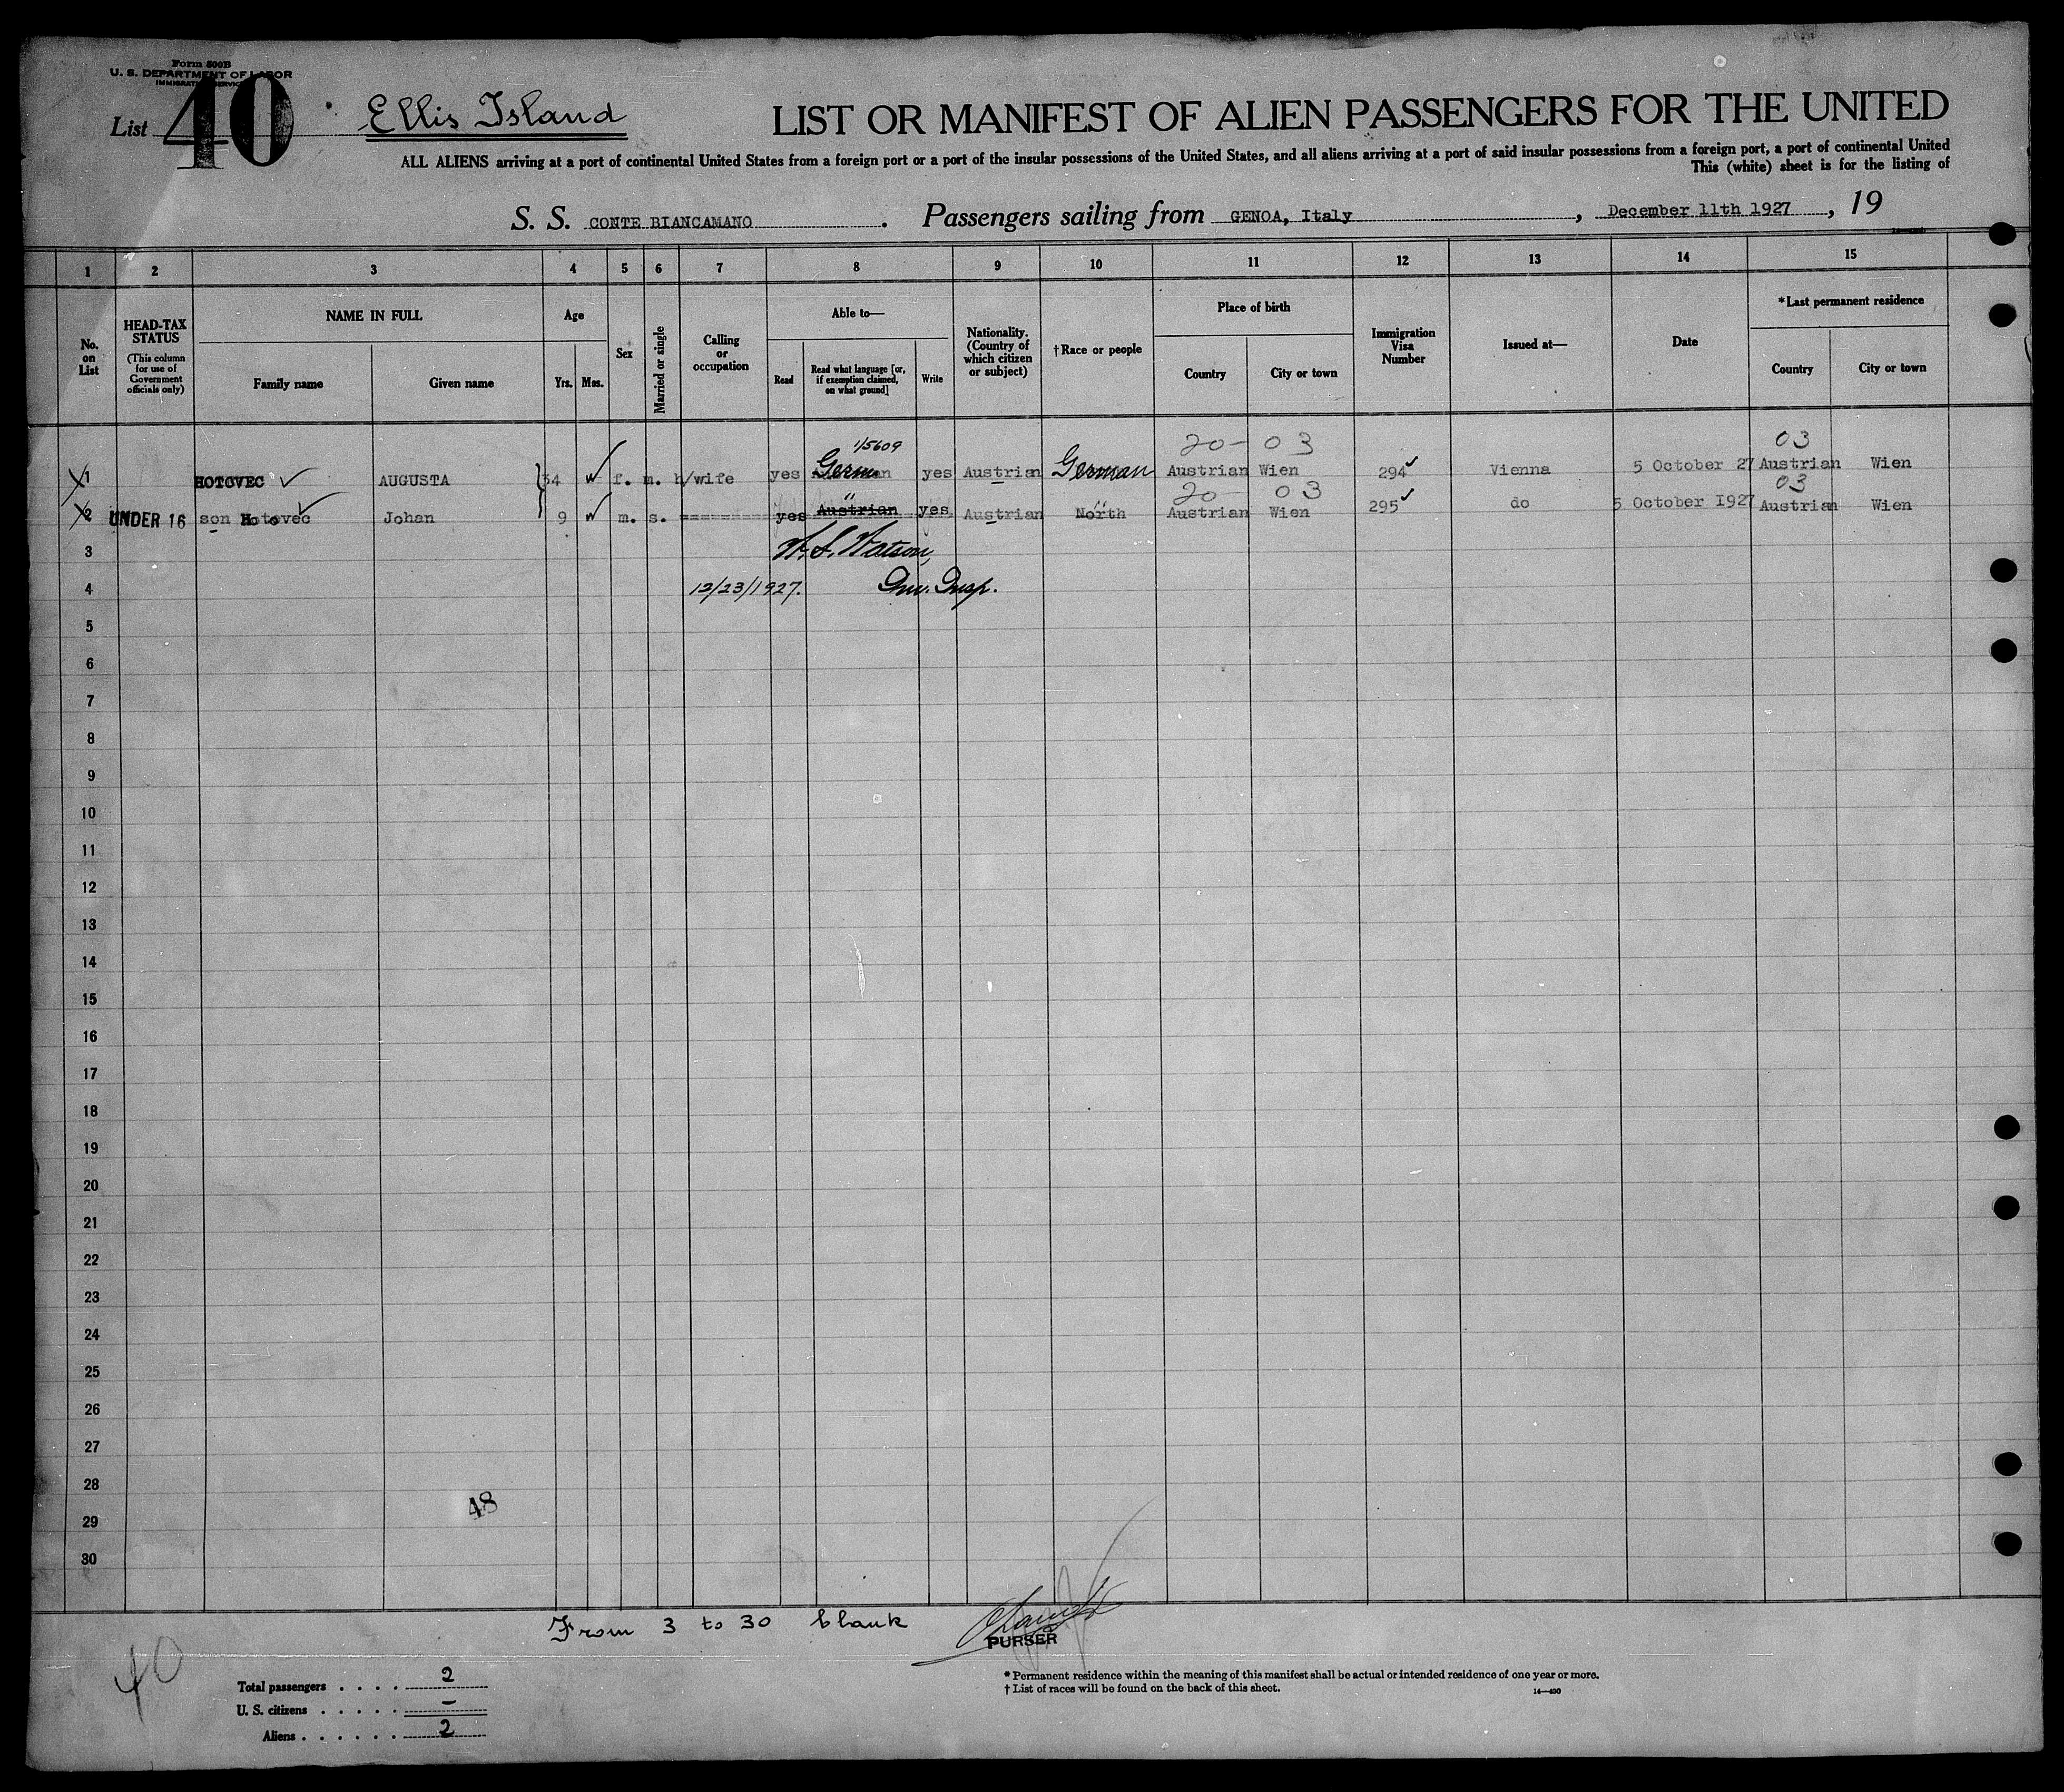 Form 500B
U. S. DEPARTMENT OF LABOR
IMMIGRATION SERVICE
List 40
Ellis Island
LIST OR MANIFEST OF ALIEN PASSENGERS FOR THE UNITED
ALL ALIENS arriving at a port of continental United States from a foreign port or a port of the insular possessions of the United States, and all aliens arriving at a port of said insular possessions from a foreign port, a port of continental United
This (white) sheet is for the listing of
S. S. CONTE BIANCAMANO . Passengers sailing from GENOA, Italy , December 11th 1927 , 19
1 2 3 4 5 6 7 8 9 10 11 12 13 14 15
No. on List
HEAD-TAX STATUS
(This column for use of Government officials only)
NAME IN FULL
Family name
Given name
Age
Yrs. Mos.
Sex
Married or single
Calling or occupation
Able to—
Read
Read what language [or, if exemption claimed, on what ground]
Write
Nationality. (Country of which citizen or subject)
†Race or people
Place of birth
Country
City or town
Immigration Visa Number
Issued at—
Date
*Last permanent residence
Country
City or town
1/5609 20- 03 03
1 HOTOVEC AUGUSTA 34 f. m. h/wife yes German yes Austrian German Austrian Wien 294 Vienna 5 October 27 Austrian Wien
20- 03 03
2 UNDER 16 son Hotovec Johan 9 m. s. yes " Austrian yes Austrian North " Austrian Wien 295 do 5 October 1927 Austrian Wien
3 Watson
4 12/23/1927. Imm. Insp.
5
6
7
8
9
10
11
12
13
14
15
16
17
18
19
20
21
22
23
24
25
26
27
28
48
29
30
From 3 to 30 blank
PURSER
40
Total passengers . . . . 2
U. S. citizens . . . . . –
Aliens . . . . . . 2
* Permanent residence within the meaning of this manifest shall be actual or intended residence of one year or more.
† List of races will be found on the back of this sheet.
14—430